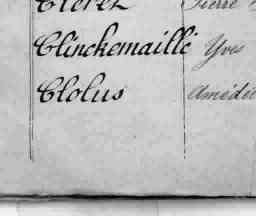 Cleret Pierre
Clinckemaille Yves
Clolus Amédée